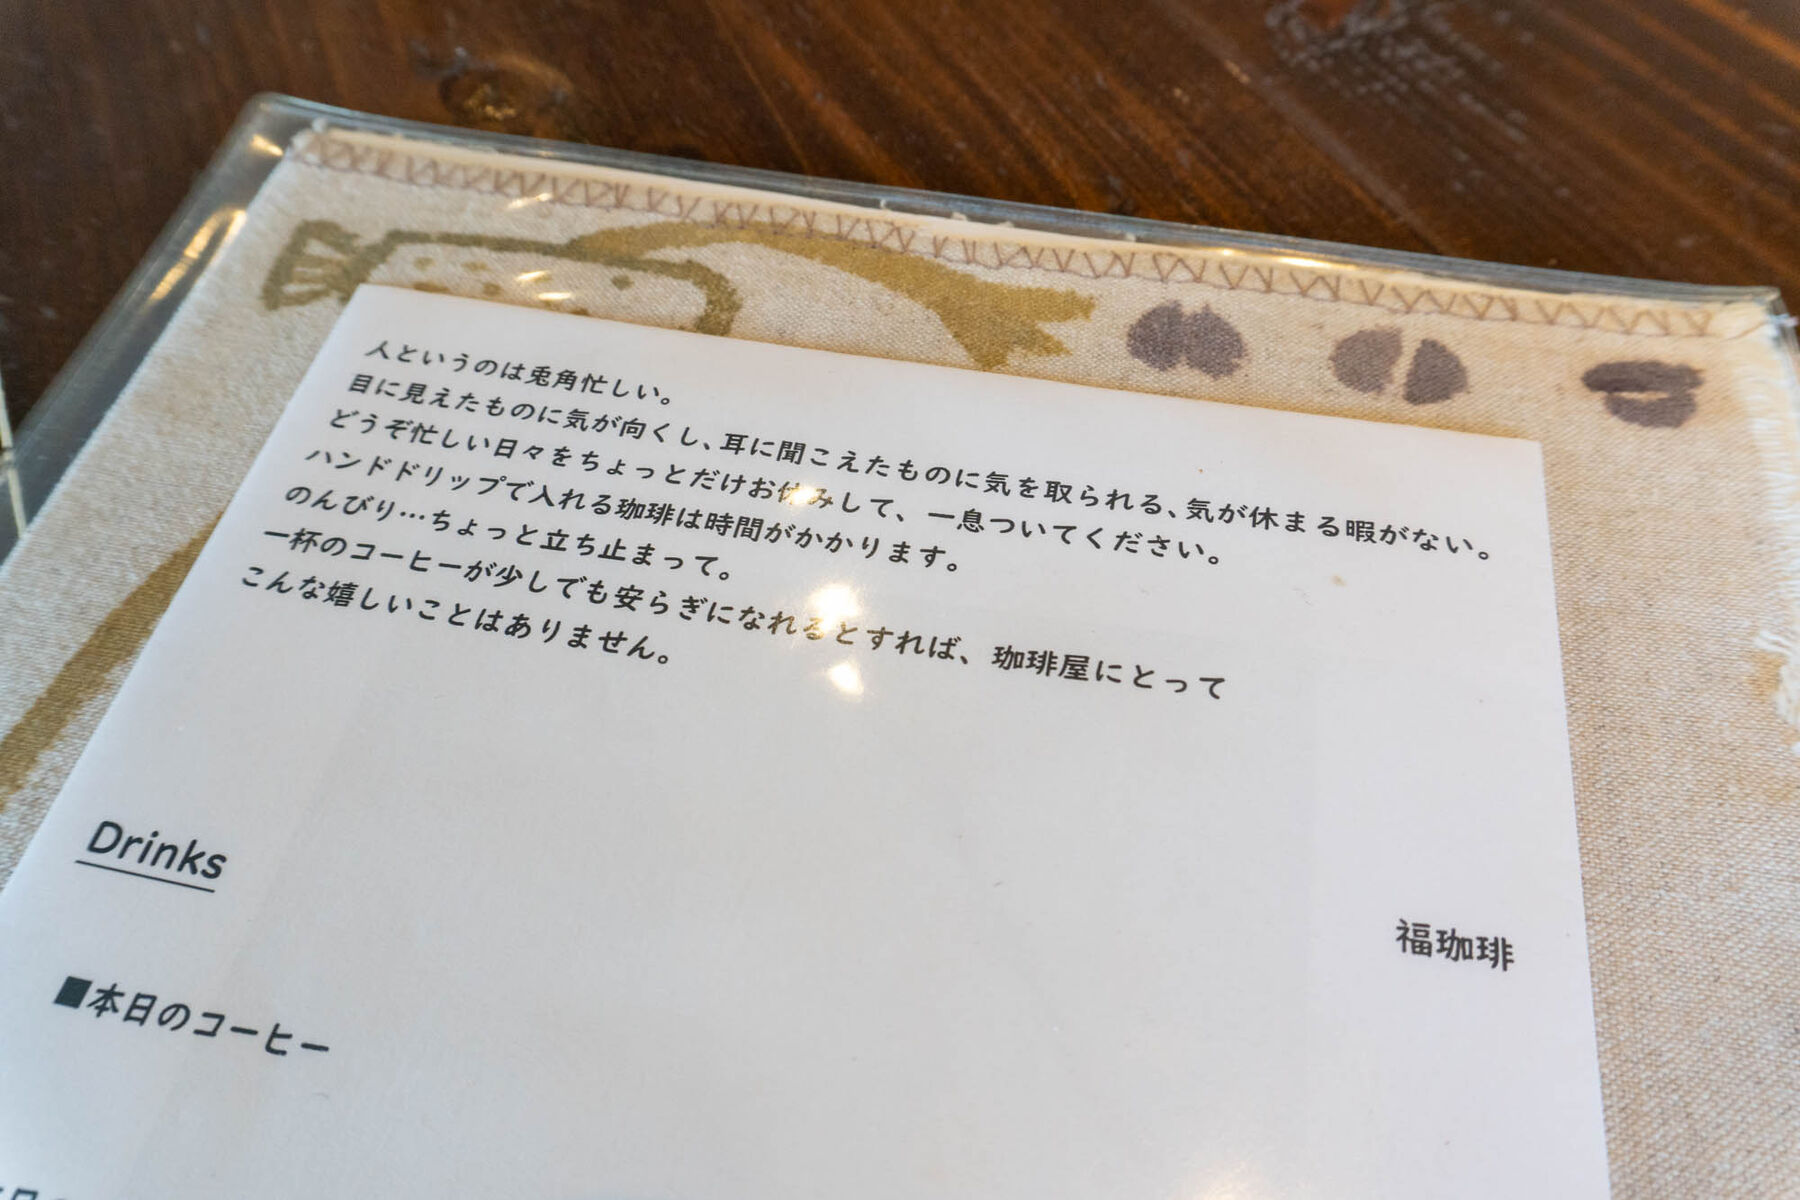 人というのは兎角忙しい。
目に見えたものに気が向くし、耳に聞こえたものに気を取られる、気が休まる暇がない。
どうぞ忙しい日々をちょっとだけお休みして、一息ついてください。
ハンドドリップで入れる珈琲は時間がかかります。
のんびり…ちょっと立ち止まって。
一杯のコーヒーが少しでも安らぎになれるとすれば、珈琲屋にとって
こんな嬉しいことはありません。
Drinks
福珈琲
■本日のコーヒー